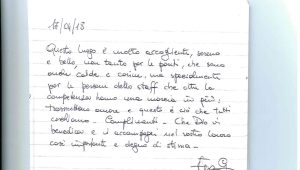 18/04/18
Questo luogo è molto accogliente, sereno
e bello, non tanto per le pareti, che sono
anche calde e carine, ma specialmente
per le persone dello staff che oltre la
competenza hanno una marcia in più:
trasmettono amore e questo è ciò che tutti
vogliamo - Complimenti - Che Dio vi
benedica e vi accompagni nel vostro lavoro
così importante e degno di stima -